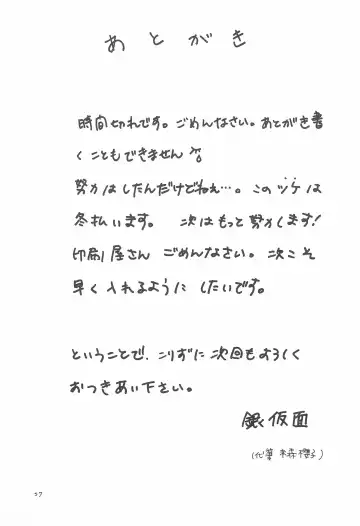 あとがき
時間切れです。ごめんなさい。あとがき書
くこともできません
努力はしたんだけどねぇ…。このツケは
冬払います。 次はもっと努力します!
印刷屋さん ごめんなさい。次こそ
早く入れるように したいです。
ということで、こりずに次回もよろしく
おつきあい下さい。
銀仮面
(代筆 森 櫻子)
27